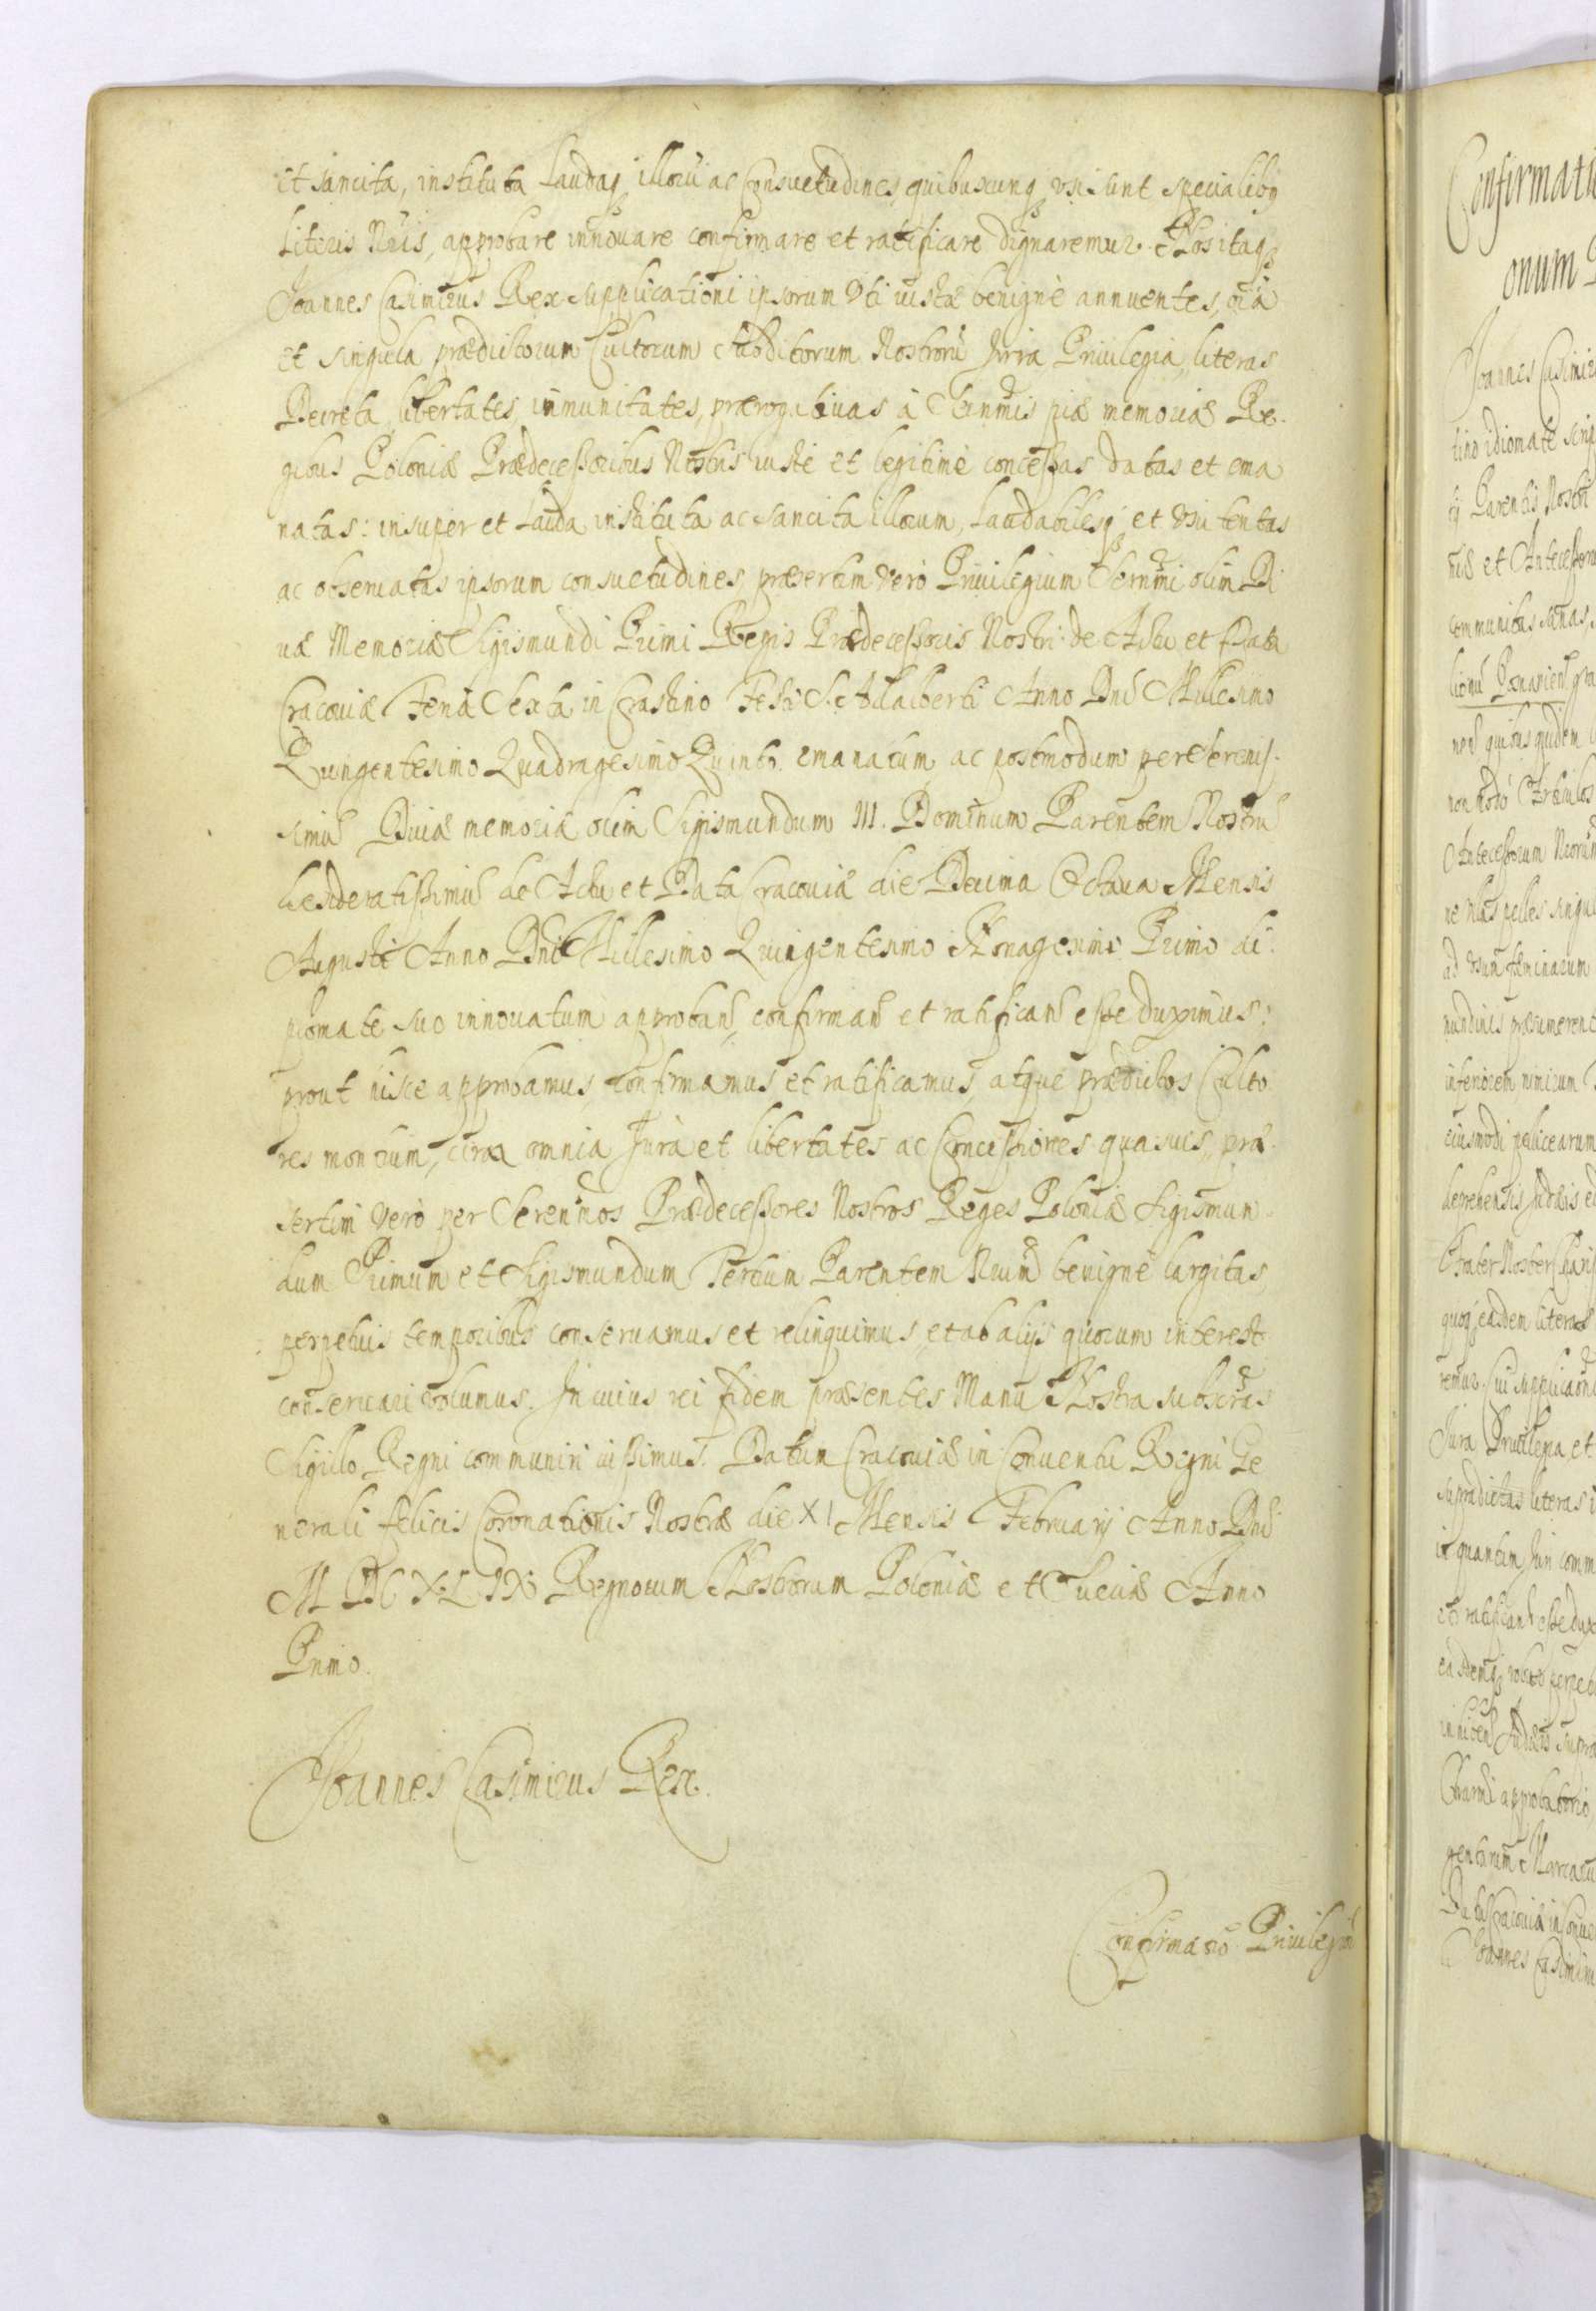 et sancita, instituta Laudaq illorū ac Consuetudines, quibuscunq vsi sunt specialibq
Literis Nrīs, approbare innouare confirmare et ratificare dignaremur. Nos itaq
Joannes Casimirus Rex supplicationi ipsorum Vti iustæ benigne annuentes, oīa
et singula prædictorum Cultorum Subditorum Nostrorū Jura Priuilegia, literas
Decreta, libertates, immunitates, prærogatiuas à Sermīs piæ memoriæ Re-
gibus Poloniæ Prædecessoribus Nostris iuste et legitimè concessas datas et ema
natas: insuper et Lauda instituta ac sancita illorum, Laudabilesq et vsu tentas
ac obseruatas ipsorum consuetudines, præsertim verò Priuilegium Sernmi olim Di
uæ Memoriæ Sigismundi Primi Regis Prædecessoris Nostri de Actu et Data
Cracouiæ Feria Sexta in Crastino Festi S. Adalberti Anno Dnī Millesimo
Quingentesimo Quadragesimo Quinto emanatum, ac postmodum per Serenis-
simū Diuæ memoriæ olim Sigismundum III. Dominum Parentem Nostrū
desideratissimū de Actu et Data Cracouiæ die Decima Octaua Mensis
Augusti Anno Dnī Millesimo Quingentesimo Nonagesimo Primo di-
plomate suo innouatum approband, confirmand et ratificand esse duximus:
prout hisce approbamus, confirmamus et ratificamus, atque prædictos Culto
res montium, circa omnia Jura et libertates ac Concessiones quasuis, præ-
sertim verò per Serennos Prædecessores Nostros Reges Poloniæ Sigismun-
dum Primum et Sigismundum Tertium Parentem Nrum benigne largitas,
perpetuis temporibus conseruamus et relinquimus, et ab alijs quorum interest
conseruari volumus. In cuius rei fidem præsentes Manu Nostra subscrtas
Sigillo Regni communiri iussimus. Datum Cracouiæ in Conuentu Regni Ge
nerali felicis Coronationis Nostræ die XI Mensis Februarij Anno Dnī
M DC XLIX Regnorum Nostrorum Poloniæ et Sueciæ Anno
Primo.
Joannes Casimirus Rex.
Confirmatio Priuilegior
Confirmatio
onum
Joannes Casimir
tino idiomate scrip
Parentis Nostri
et Antecessor
communitas
quibus quidem
Antecessorum Nrorum
pelles singu
ad vsum feminarum
nundinis præsumerent
inferiorem nimirum
eiusmodi pellicearum
deprehensis Judæis
Frater Noster
quoq easdem literas
remur. Cui supplicaoni
Jura Priuilegia, et
supradictas literas
in quantum Juri comm
et ratificand esse dux
Judæis supra
approbatorio
Joannes Casimirus